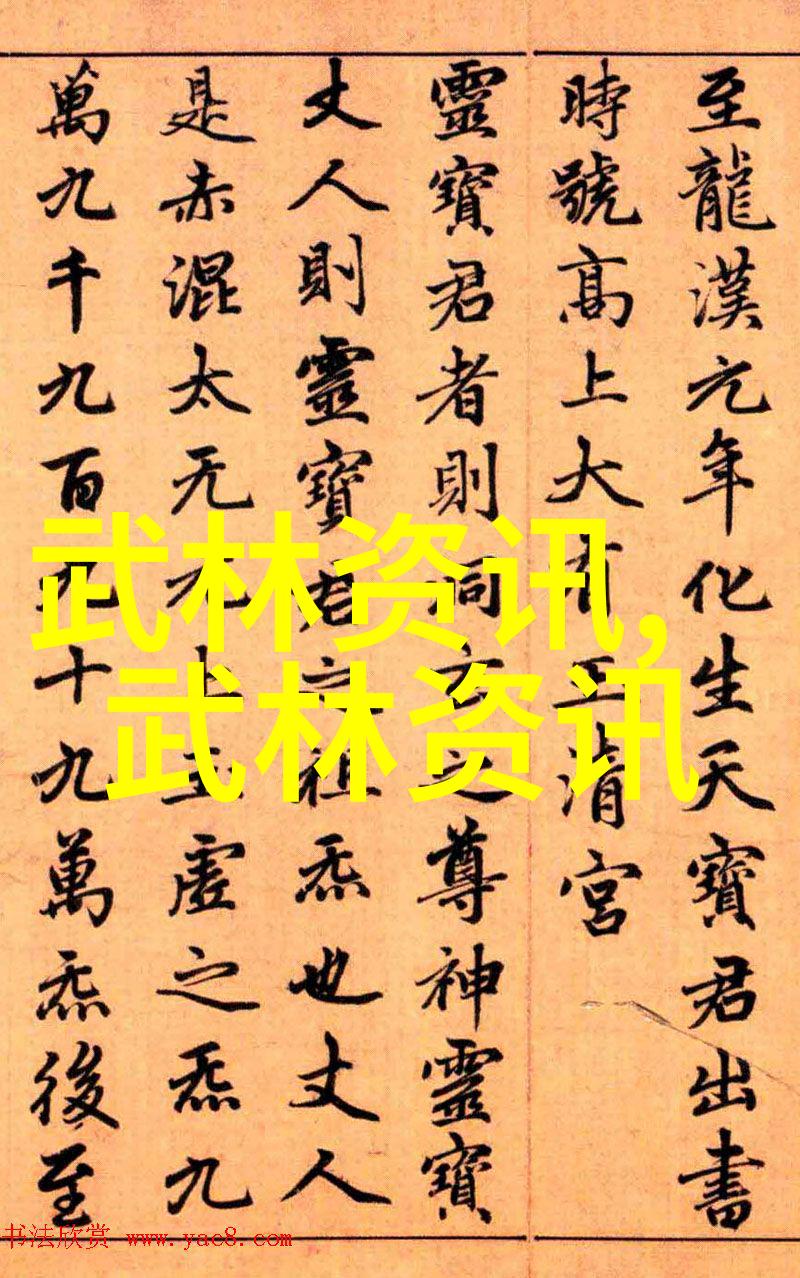 至龍漢元年化生天寶君出書
時號高上大有玉清宮
靈寶君者則洞玄之尊神靈寶
丈人則靈寶君之祖炁也丈人
是赤混太无元上玉虛之炁九
萬九千九百九十九萬炁後至
武林资讯,
武林资讯
书法欣赏 www.yac8.com